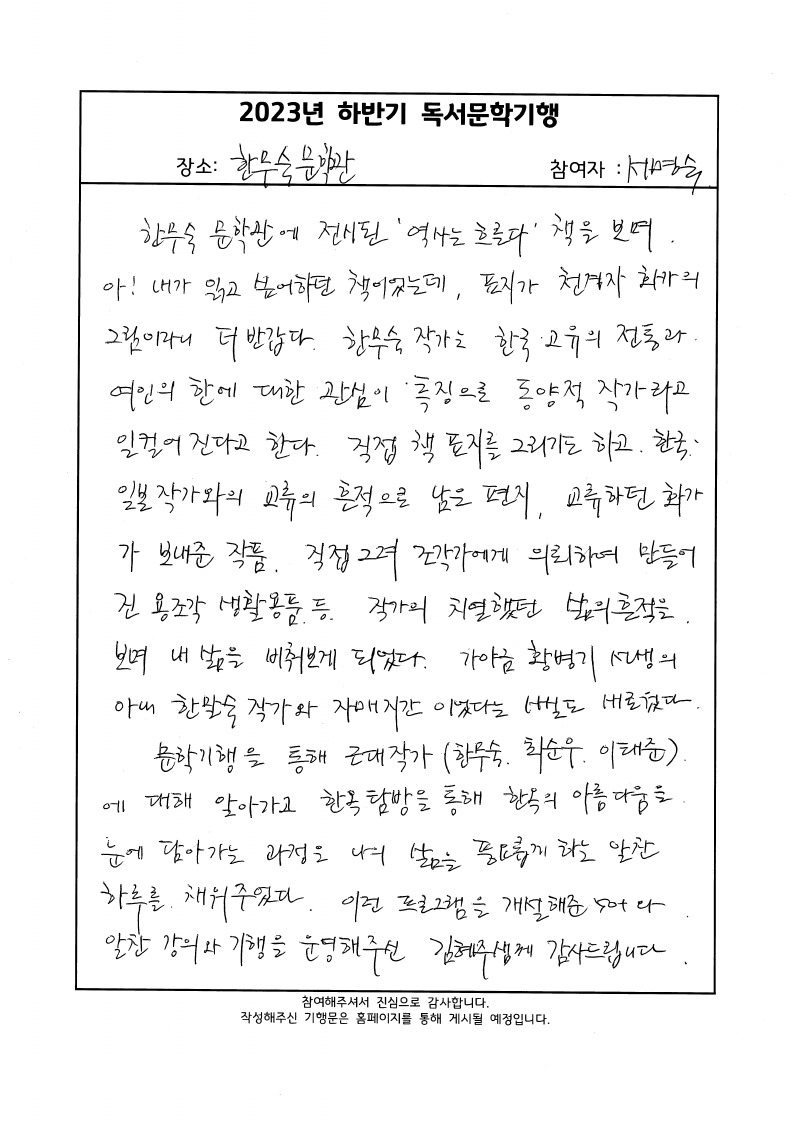 2023년 하반기 독서문학기행
장소: 한무숙문학관 참여자 : 서명숙
한무숙 문학관에 전시된 '역사는 흐른다' 책을 보며.
아! 내가 읽고 싶어하던 책이었는데, 표지가 천경자 화가의
그림이라니 더 반갑다. 한무숙 작가는 한국 고유의 전통과
여인의 한에 대한 관심이 특징으로 동양적 작가라고
일컬어 진다고 한다. 직접 책 표지를 그리기도 하고. 한국.
일본작가와의 교류의 흔적으로 남은 편지, 교류하던 화가
가 보내준 작품. 직접 그려 조각가에게 의뢰하여 만들어
진 용조각 생활용품 등. 작가의 치열했던 삶의흔적을
보며 내 삶을 비춰보게 되었다. 가야금 황병기 선생의
아내 한말숙 작가와 자매지간 이었다는 사실도 새로웠다.
문학기행을 통해 근대작가 (한무숙. 최순우. 이태준)
에 대해 알아가고 한옥탐방을 통해 한옥의 아름다움을
눈에 담아가는 과정은 나의 삶을 풍요롭게 하는 알찬
하루를 채워주었다. 이런 프로그램을 개설해준 50+ 와
알찬 강의와 기행을 운영해주신 김혜주샘께 감사드립니다.
참여해주셔서 진심으로 감사합니다.
작성해주신 기행문은 홈페이지를 통해 게시될 예정입니다.